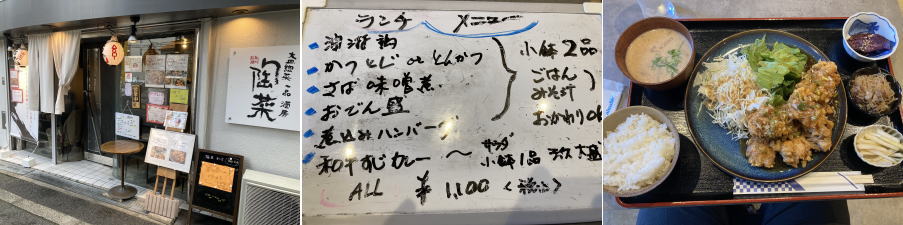 大皿惣菜一品酒房
陶菜
ランチ メニュー
油淋鶏
かつとじ or とんかつ
さば味噌煮
おでん盛
煮込みハンバーグ
和牛すじカレー ~ サラダ 小鉢1品 ライス大盛
小鉢2品
ごはん
みそ汁
おかわりok
ALL ¥1,100 <税込>